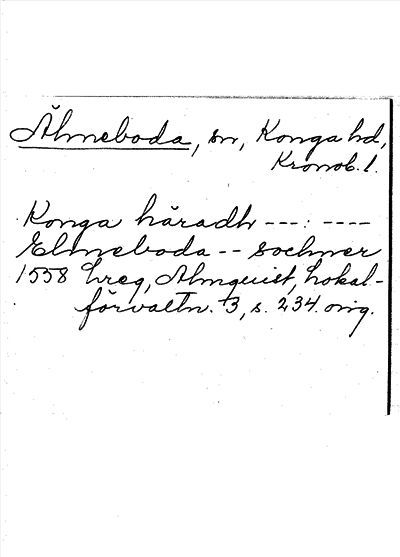 Älmeboda, sn, Konga hd,
Kronob. l.
Konga häradh ---:----
Elmeboda -- sochner
1558 hreg, Almquist, Lokal-
förvaltn. 3, s. 234. orig.